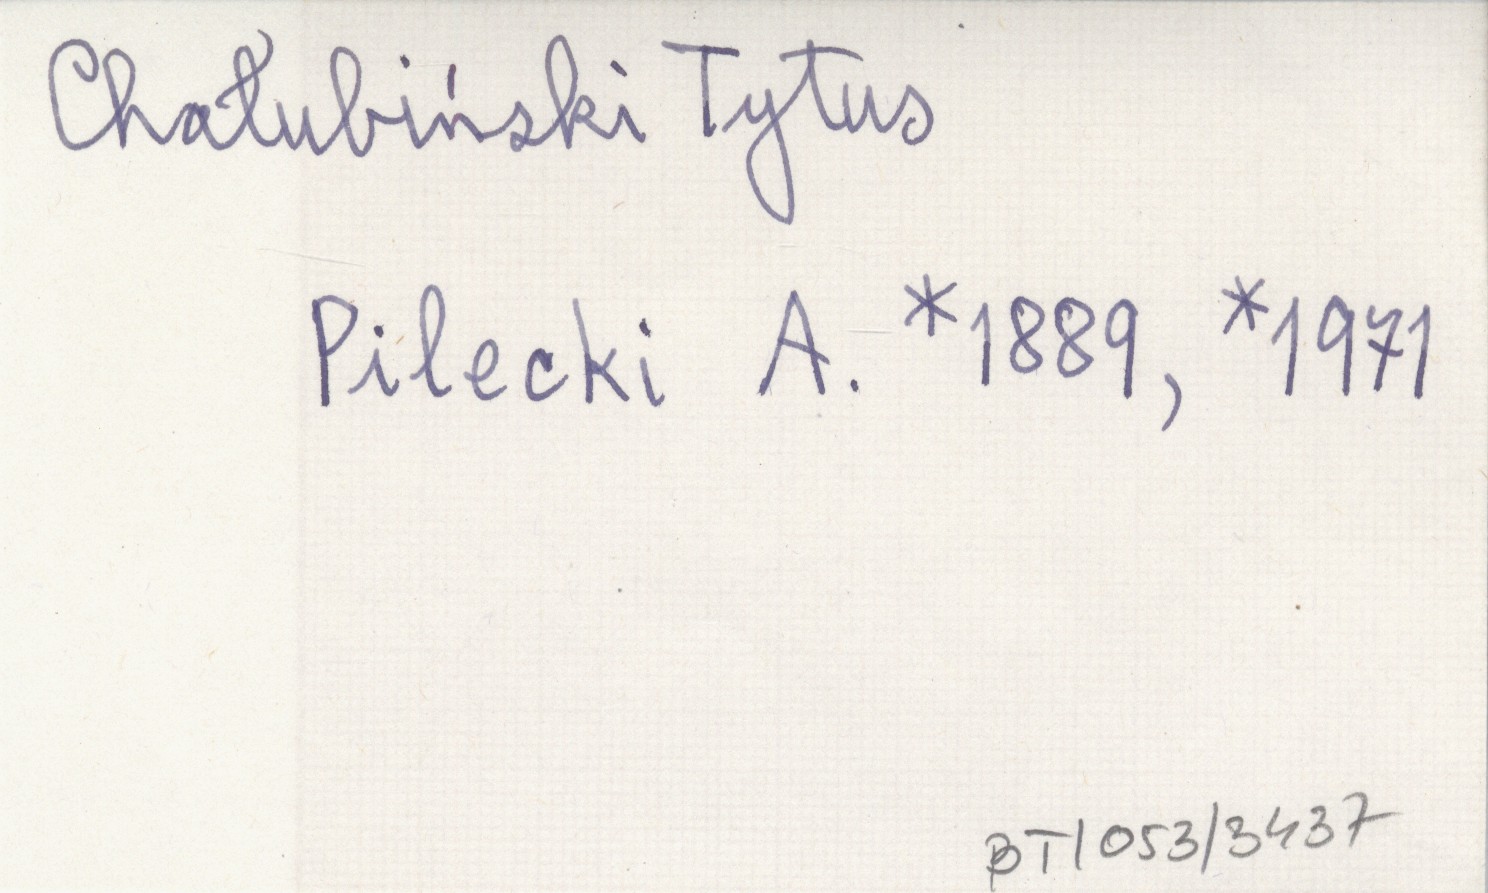 Chałubiński Tytus
Pilecki A. *1889, *1971
BT/053/3437